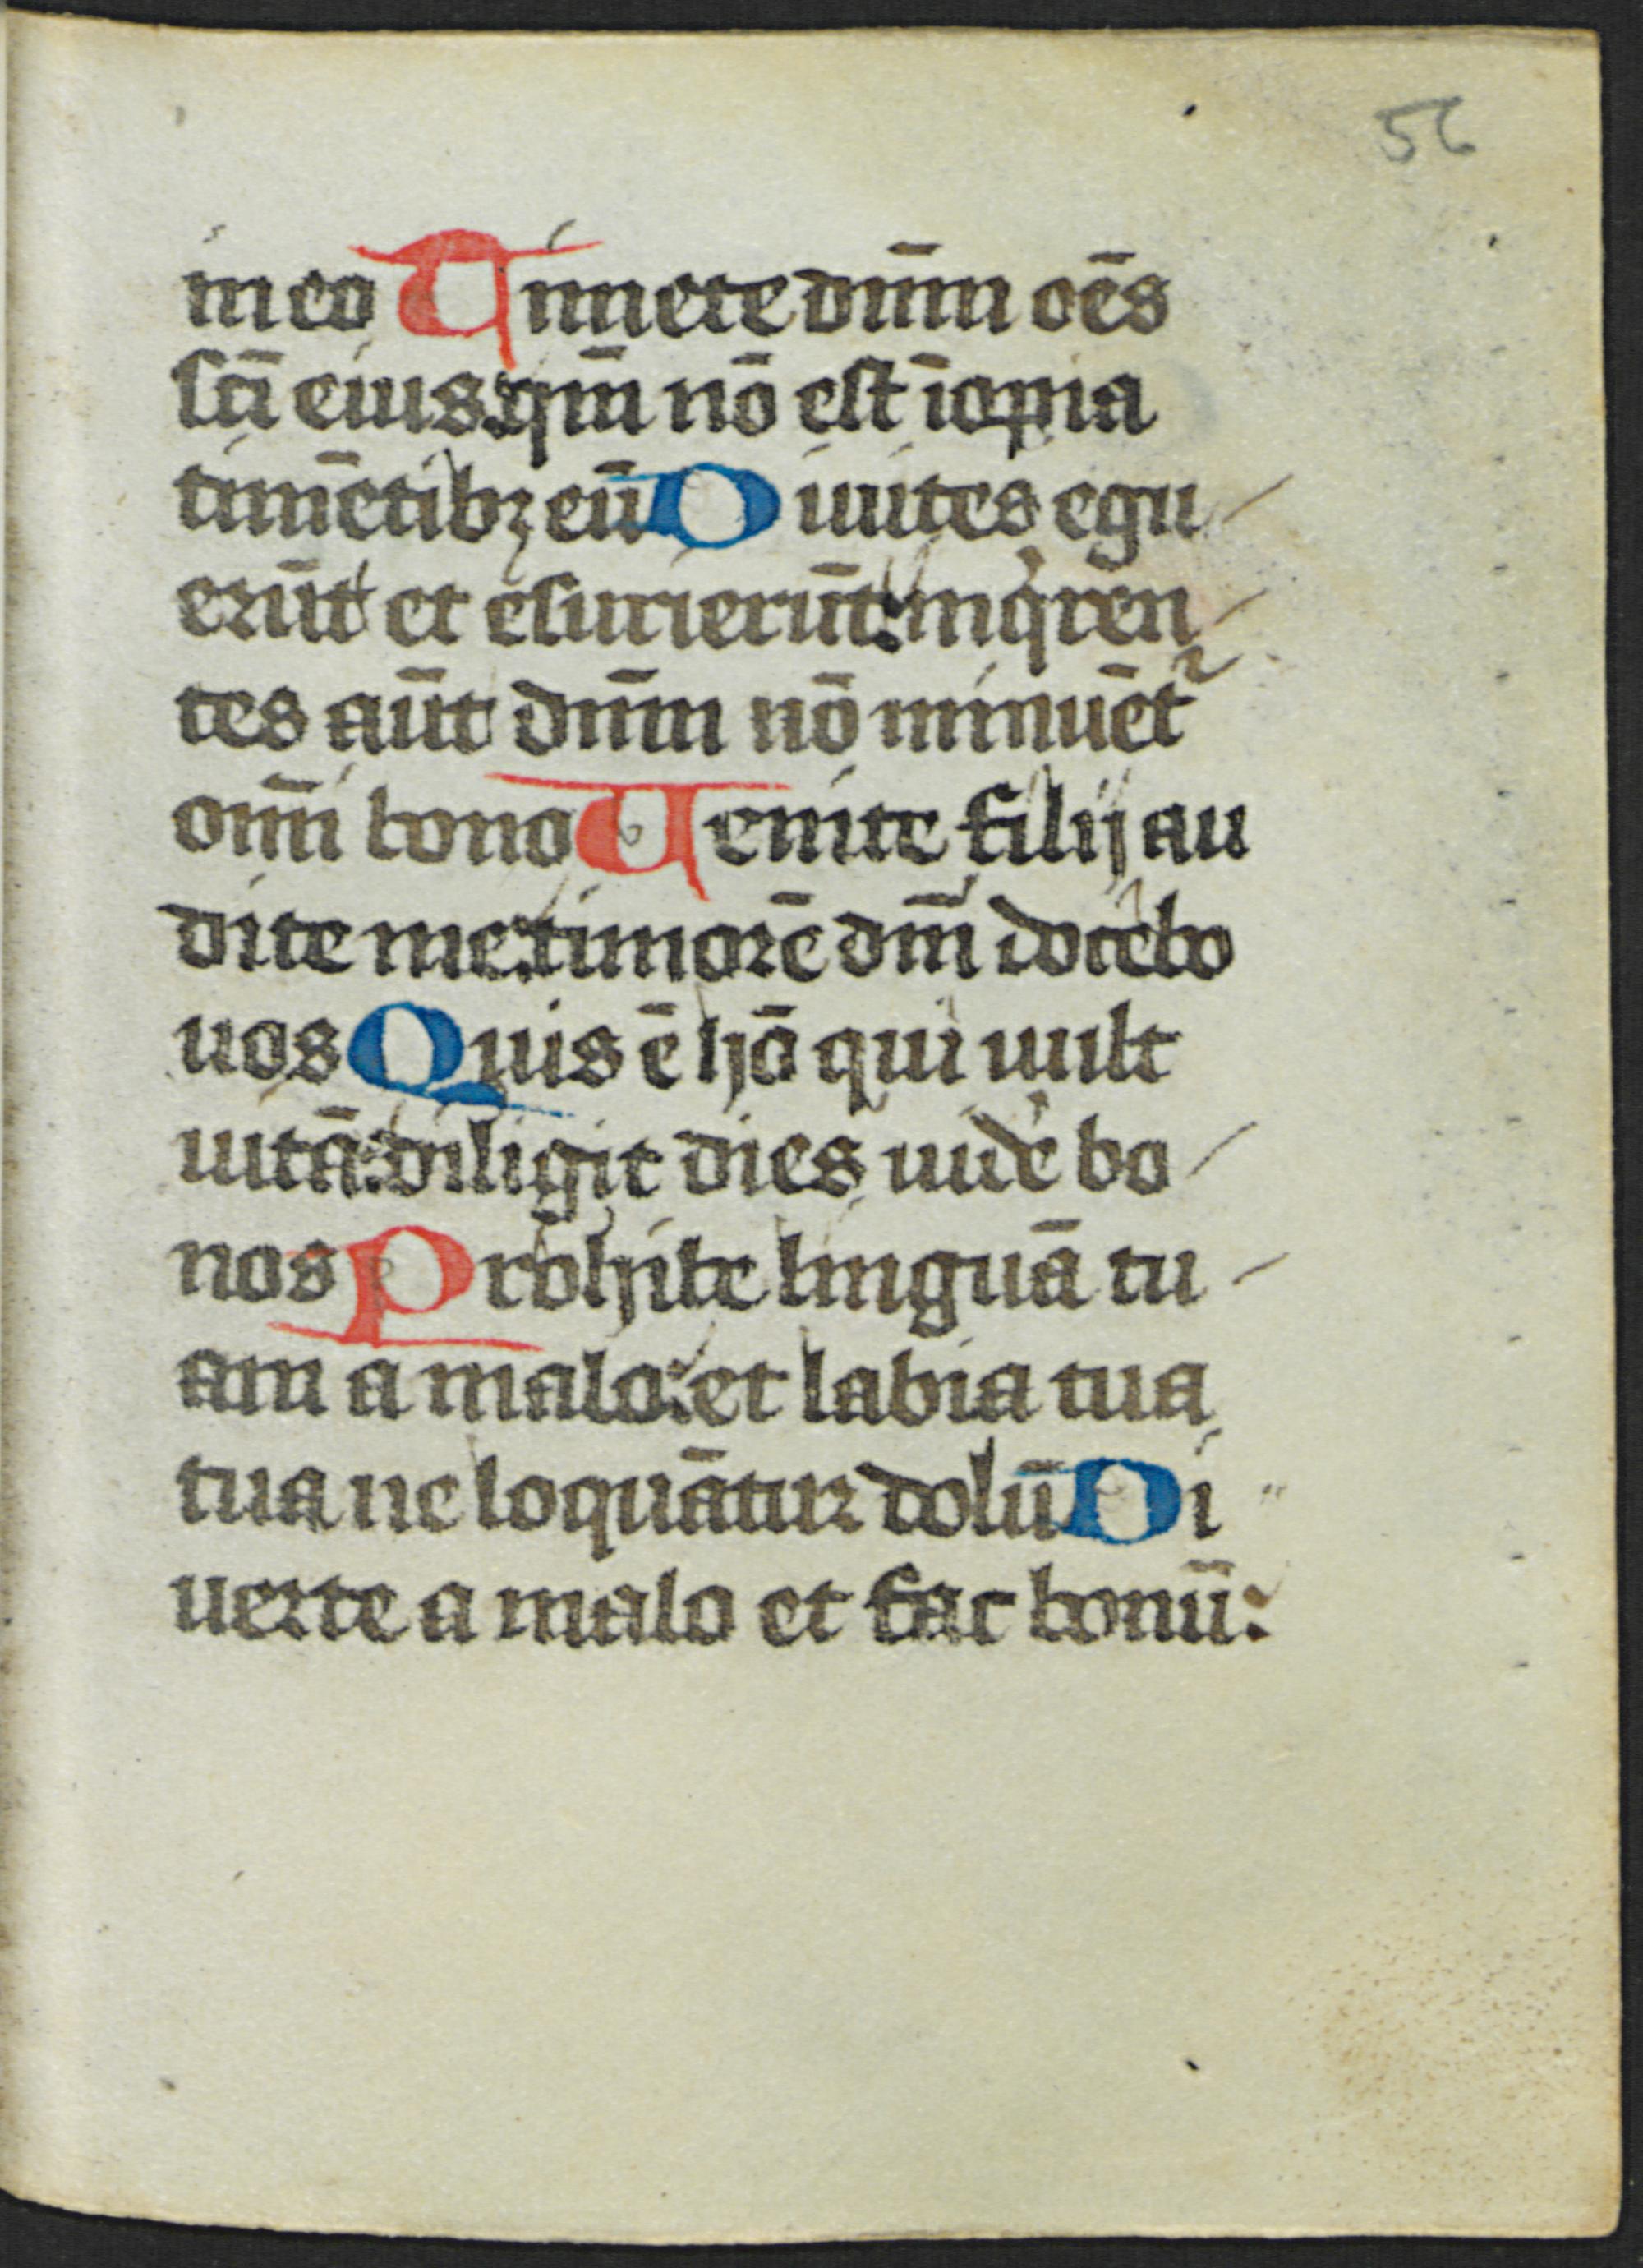 56
in eo Timete dn̄m oēs
sc̄i eius: qm̄ nō est īopia
timētibꝫ eū Diuites egu-
erūt et esurierūt: inqͥrēn-
tes aūt dn̄m nō minuēt᷑
omī bono Uenite filij au
dite me: timorē dn̄i docebo
uos Quis ē hō qui uult
uitā: diligit dies uide͛ bo-
nos Prohibe linguā tu-
am a malo: et labia tua
tua ne loquātur dolū Di
uerte a malo et fac bonū: